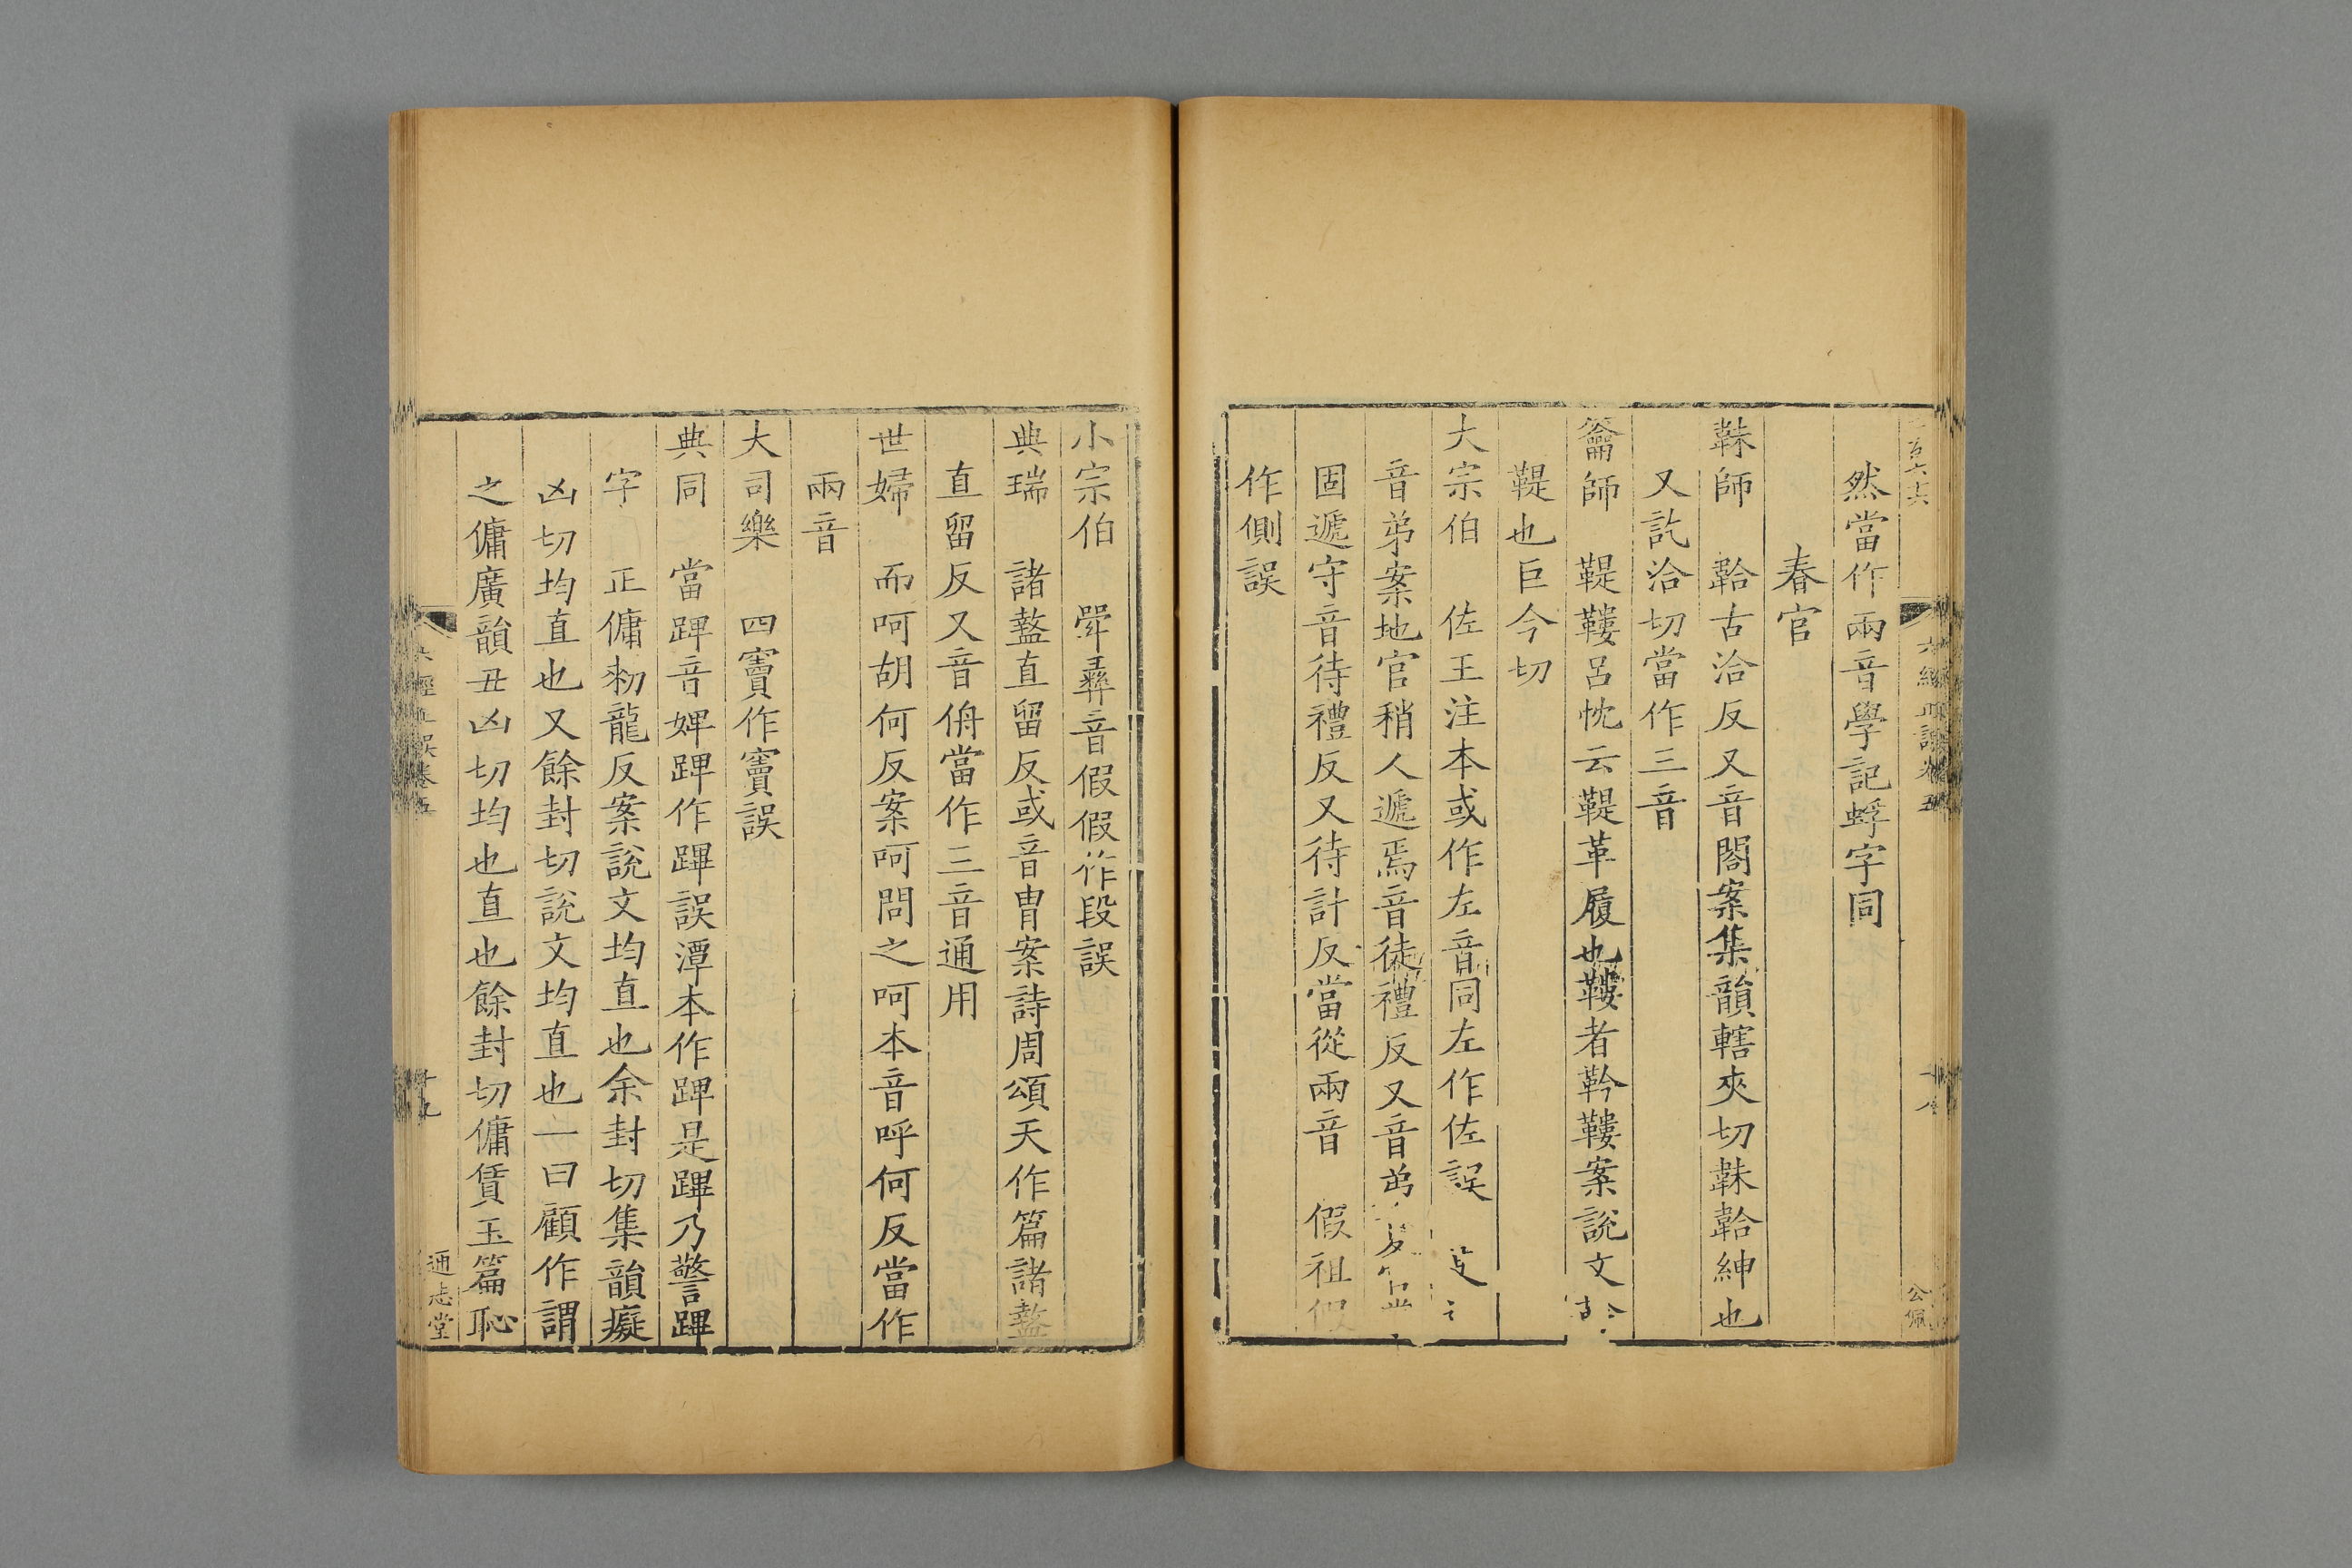 然當作兩音學記蜉字同
春官
韎師 韐古洽反又音閤案集韻轄夾切韎韐紳也
又訖洽切當作三音
籥師 鞮鞻呂忱云鞮革履也鞻者䩭鞻案說文
鞮也巨今切
大宗伯 佐王注本或作左音同左作佐誤
音弟案地官稍人遞焉音徒禮反又音弟
固遞守音待禮反又待計反當從兩音 假祖
作側誤
六經正誤卷五
十八
公佩
小宗伯 斝彞音假假作段誤
典瑞 諸盩直留反或音胄案詩周頌天作篇諸盩
直留反又音侜當作三音通用
世婦 而呵胡何反案呵問之呵本音呼何反當作
兩音
大司樂 四竇作竇誤
典同 當䠋音婢䠋作蹕誤潭本作䠋是蹕乃警蹕
字 正傭勑龍反案說文均直也余封切集韻癡
凶切均直也又餘封切說文均直也一曰顧作謂
之傭廣韻丑凶切均也直也餘封切傭賃玉篇恥
六經正誤卷五
十九
通志堂